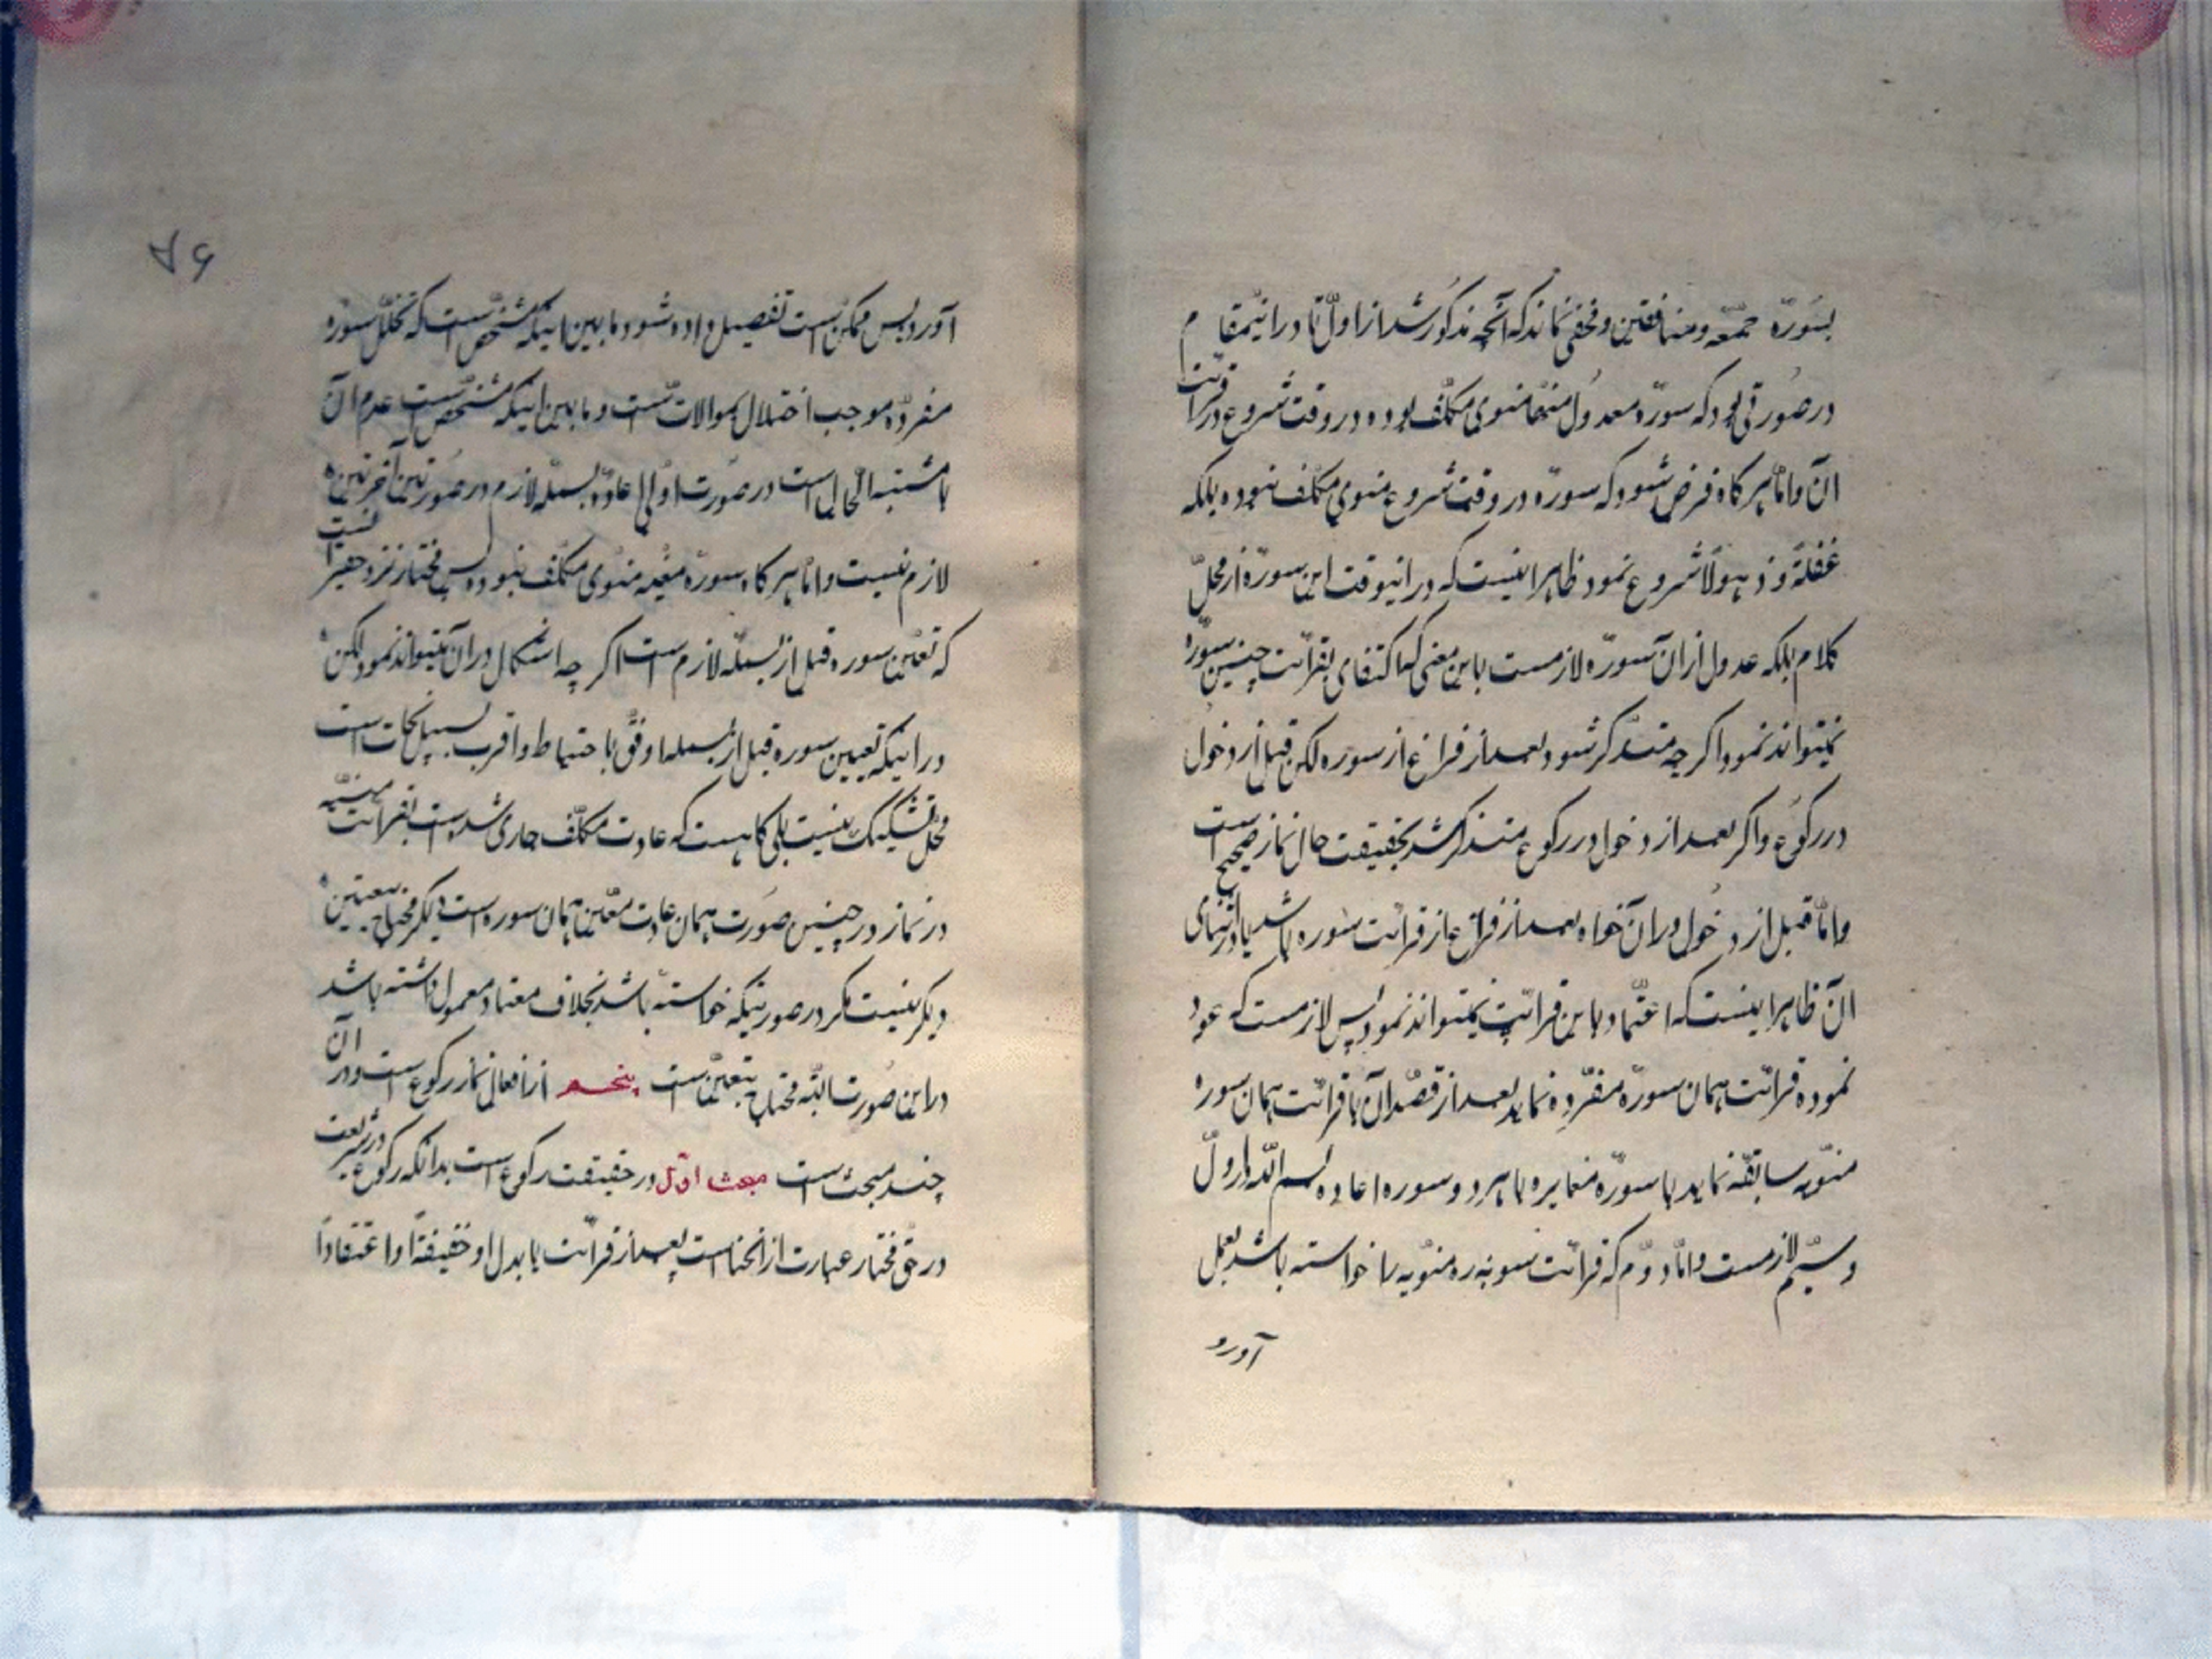 بسورهٔ جمعه و منافقین و مخفی نماند که آنچه مذکور شد از اوّل تا در اینمقام
در صورتی بود که سورهٔ معدول منها منوی مکلّف بوده در وقت شروع در قرائت
آن و امّا هر کاه فرض شود که سوره در وقت شروع منوی مکلّف نبوده بلکه
غفلةً و ذهولاً شروع نمود ظاهر اینست که در اینوقت این سوره از محلّ
کلام بلکه عدول از آن سوره لازمست باین معنی که اکتفای بقرائت چنین سوره
نمیتواند نمود اکر چه متذکّر شود بعد از فراغ از سوره لکن قبل از دخول
در رکوع و اکر بعد از دخول در رکوع متذکر شد بحقیقت حال نماز صحیح است
و امّا قبل از دخول در آن خواه بعد از فراغ از قرائت سوره باشد یا در اثنای
آن ظاهر اینست که اعتماد باین قرائت نمیتواند نمود پس لازمست که عود
نموده قرائت همان سورهٔ مفرده نماید بعد از قصد آن یا قرائت همان سوره
منویّه سابقه نماید یا سورهٔ مغایره با هر دو سوره اعاده بسم اللّه در اوّل
و سیّم لازمست و امّا دوّم که قرائت سوره منویّه را خواسته باشد بعمل
آورد
۸۶
آورد پس ممکن است تفصیل داده شود ما بین اینکه مشخّص است که تخلّل سوره
مفرده موجب اختلال بموالات است و ما بین اینکه مشخّص است عدم آن
یا مشتبه الحال است در صورت اولی اعادهٔ بسمله لازم در صورتین آخرتین
لازم نیست و امّا هر کاه سوره معیّنه منوی مکلّف نبوده پس مختار نزد حقیر اینست
که تعیین سوره قبل از بسمله لازم است اکر چه اشکال در آن میتواند نمود لکن
در اینکه تعیین سوره قبل از بسمله اوفق باحتیاط و اقرب بسبیل نجات است
محلّ تشکیک نیست بلی کاهست که عادت مکلّف جاری شده است بقرائت معیّنه
در نماز در چنین صورت همان عادت معیّن همان سوره است دیکر محتاج بتعیین
دیکر نیست مکر در صورتیکه خواسته باشد بخلاف معتاد معمول داشته باشد
در این صورت البتّه محتاج بتعیین است پنجم از افعال نماز رکوع است و در آن
چند مبحث است مبحث اوّل در حقیقت رکوع است بدانکه رکوع در شریعت
در حقّ مختار عبارت از انحنا است بعد از قرائت یا بدل او حقیقةً او اعتقاداً